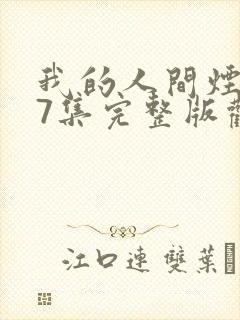 我的人間煙
7集完整版
江口連 雙葉